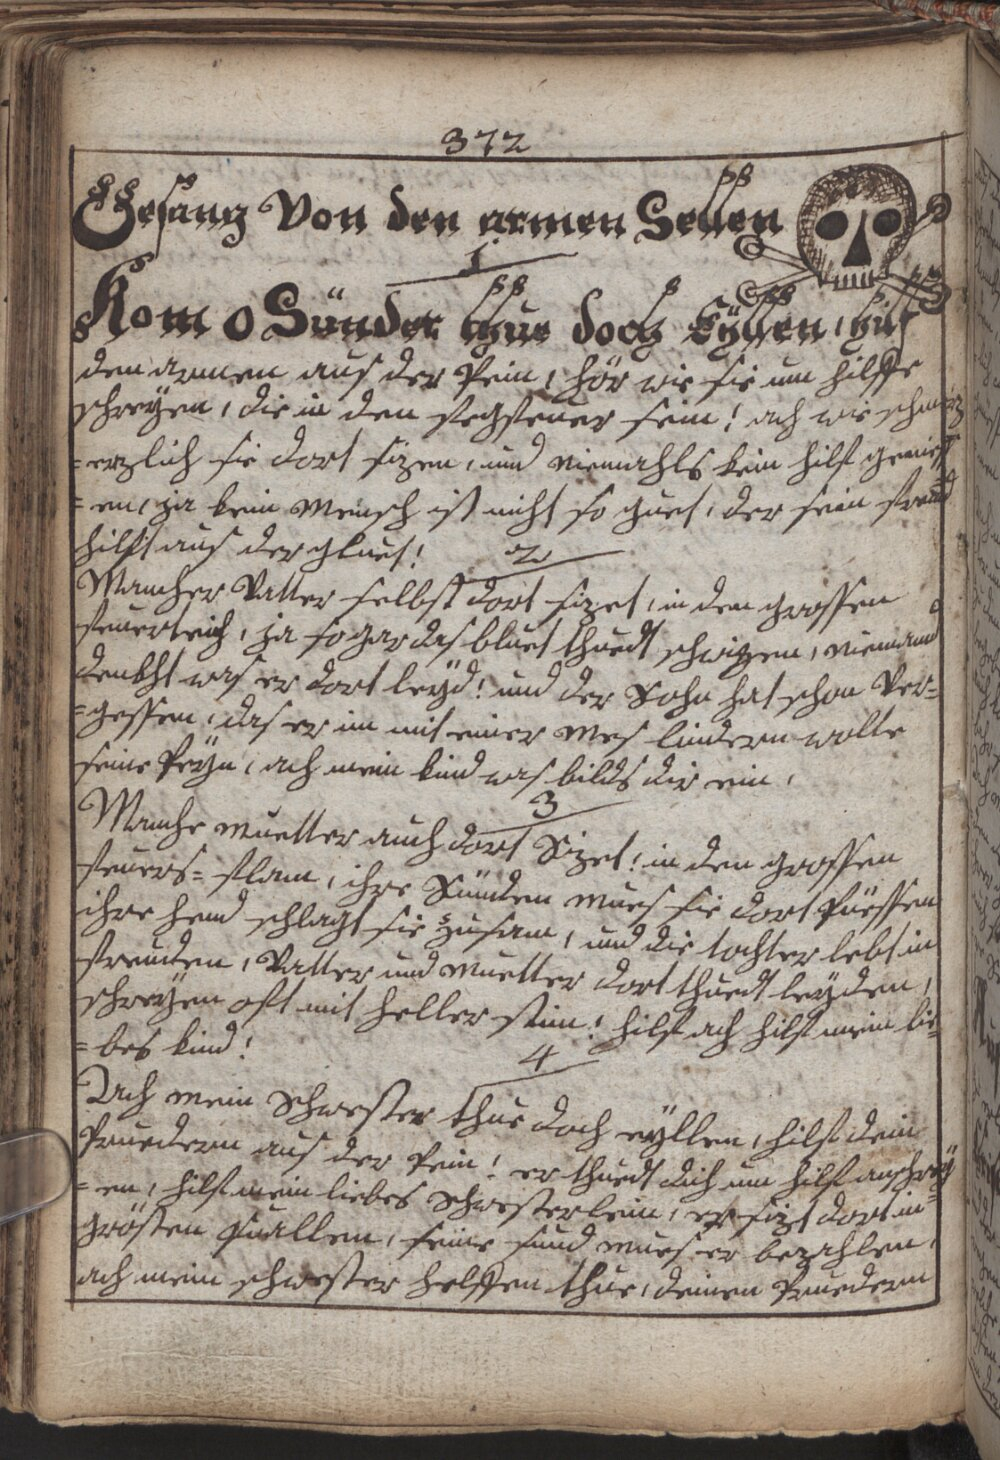 372
Gesang Von den armen Sellen
1
Kom o Sünder thue doch Eÿllen, hilf
den armen aus der Pein, hör wie sie um hilffe
schreÿen, die in den fegfeuer sein! ach wie schmerz
=erzlich sie dort sizen, und niemahls kein hilf genies
=en, ja kein Mensch ist nicht so guet, der sein freund
hilft aus der gluet!
2
Mancher Vatter selbst dort sizet, in den grossen
feuerteich, ja sogar das bluet thuedt schwizen, niemand
denkht was er dort leÿd! und der Sohn hat schon Ver=
=gessen, das er im mit einer Mes lindern wolte
seine Peÿn, ach mein kind was bilds dir ein,
3
Manche Muetter auch dort Sizet! in den grossen
feuers=flam, ihre Sünden mues sie dort Püessen
ihre hend schlagt sie zusam, und die tochter lebt in
freuden, Vatter und Muetter dort thuedt leÿden,
schreÿen oft mit heller stim! hilf ach hilf mein lie=
=bes kind!
4
Ach mein Schwester thue doch eÿllen, hilf dein
Pruedern aus der Pein! er thuedt dich um hilf anschreÿ
=en, hilf mein liebes Schwesterlein, er sizt dort in
grösten Quallen, seine sund mues er bezahlen,
ach mein schwester helffen thue, deinen Pruedern